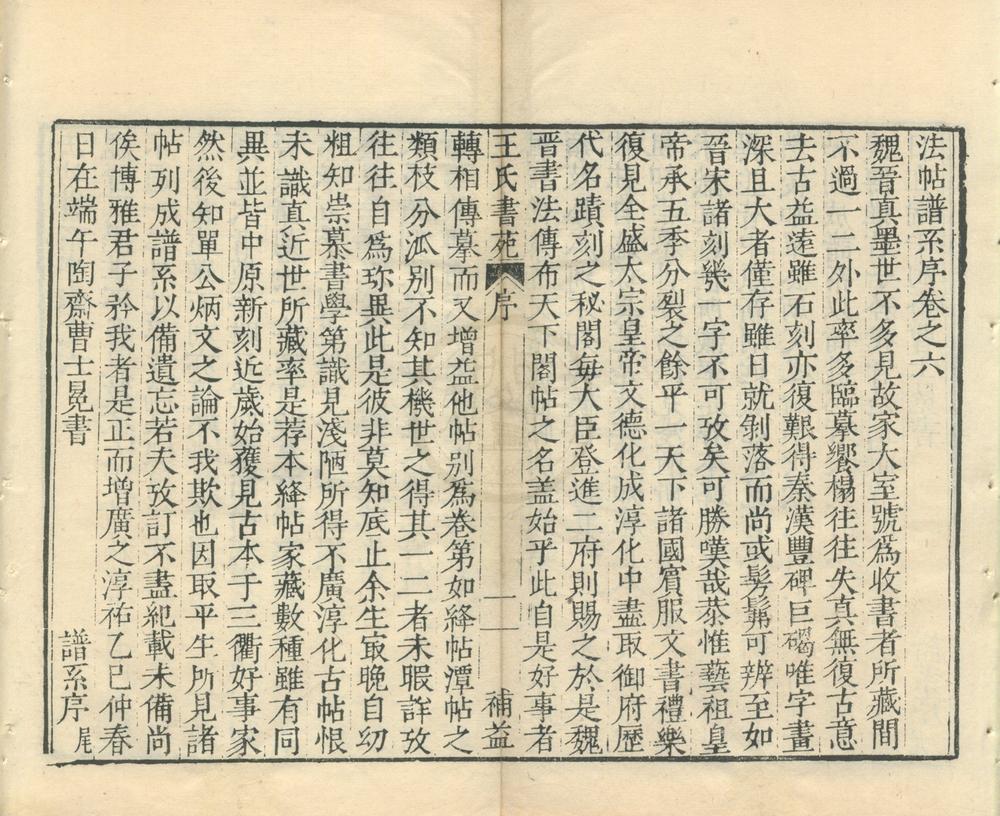 法帖譜系序卷之六
魏晉真墨世不多見故家大室號爲收書者所藏間
不過一二外此率多臨摹響榻往往失真無復古意
去古益遠雖石刻亦復艱得秦漢豐碑巨碣唯字畫
深且大者僅存雖日就剝落而尚或髣髴可辨至如
晉宋諸刻幾一字不可攷矣可勝嘆哉恭惟藝祖皇
帝承五季分裂之餘平一天下諸國賓服文書禮樂
復見全盛太宗皇帝文德化成淳化中盡取御府歷
代名蹟刻之秘閣每大臣登進二府則賜之於是魏
晉書法傳布天下閣帖之名盖始乎此自是好事者
王氏書苑 序 一 補益
轉相傳摹而又增益他帖别爲卷第如絳帖潭帖之
類枝分泒别不知其機世之得其一二者未暇詳攷
往往自爲珎異此是彼非莫知底止余生㝡晚自㓜
粗知崇慕書學第識見淺陋所得不廣淳化古帖恨
未識真近世所藏率是荐本絳帖家藏數種雖有同
異並皆中原新刻近歲始獲見古本于三衢好事家
然後知單公炳文之論不我欺也因取平生所見諸
帖列成譜系以備遺忘若夫攷訂不盡紀載未備尚
俟博雅君子矜我者是正而增廣之淳祐乙巳仲春
日在端午陶齋曹士冕書
譜系序 尾